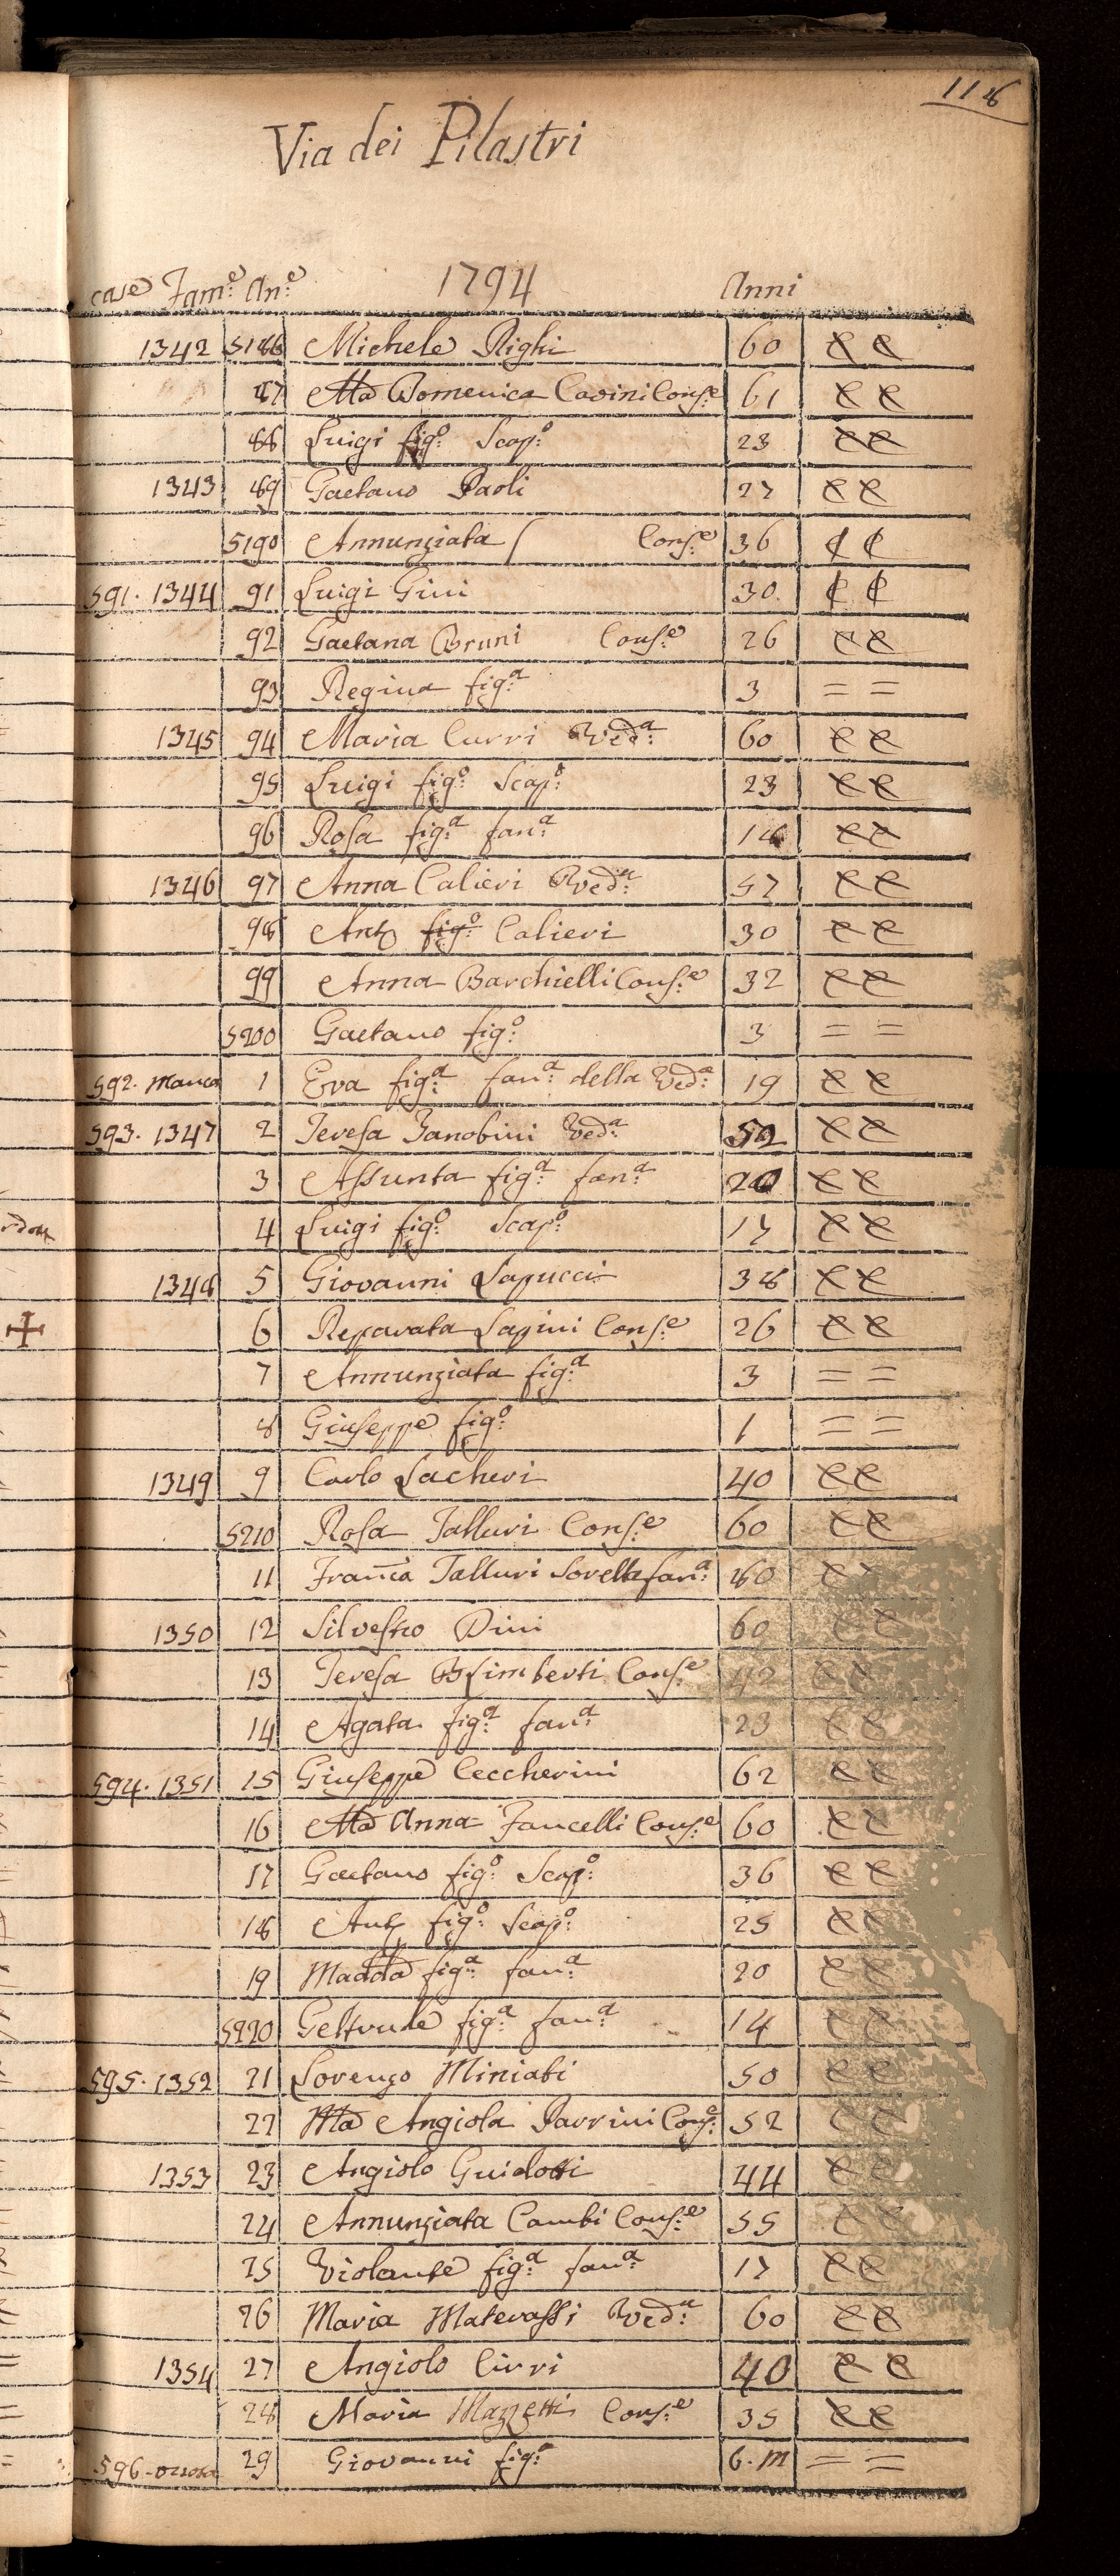 118
Via dei Pilastri
case Fam:e An:e 1794 Anni
1342 5186 Michele Righi 60
87 Ma Domenica Cavini Conse: 61
88 Luigi figo: Scapo: 23
1343 89 Gaetano Paoli 27
5190 Annunziata Conse: 36
591. 1344 91 Luigi Gini 30
92 Gaetana Bruni Conse: 26
93 Regina figa: 3 = =
1345 94 Maria Curri Veda: 60
95 Luigi figo: Scapo: 23
96 Rosa figa: fana: 18
1346 97 Anna Calieri Veda: 57
98 Anto figo: Calieri 30
99 Anna Barchielli Conse: 32
5200 Gaetano figo: 3 = =
592. manca 1 Eva figa: fana: della Veda: 19
593. 1347 2 Teresa Zanobini Veda: 50
3 Assunta figa: fana: 20
4 Luigi figo: Scapo: 17
1348 5 Giovanni Lapucci 38
6 Reparata Lapini Conse: 26
7 Annunziata figa: 3 = =
8 Giuseppe figo: 1 = =
1349 9 Carlo Lacheri 40
5210 Rosa Talluri Conse: 60
11 Franca Talluri Sorella fana: 60
1350 12 Silvestro Dini 60
13 Teresa Conse: 42
14 Agata figa: fana: 23
594. 1351 15 Giuseppe Ceccherini 62
16 Ma Anna Fancelli Conse: 60
17 Gaetano figo: Scapo: 36
18 Anto figo: Scapo: 25
19 Madda figa: fana: 20
5220 Geltrude figa: fana: 14
595. 1352 21 Lorenzo Miniati 50
22 Ma Angiola Parrini Conse: 52
1353 23 Angiolo Guidotti 44
24 Annunziata Cambi Conse: 55
25 Violante figa: fana: 17
26 Maria Materassi Veda: 60
1354 27 Angiolo Cirri 40
28 Maria Mazzetti Conse: 35
596- 29 Giovanni figo: 6. m = =